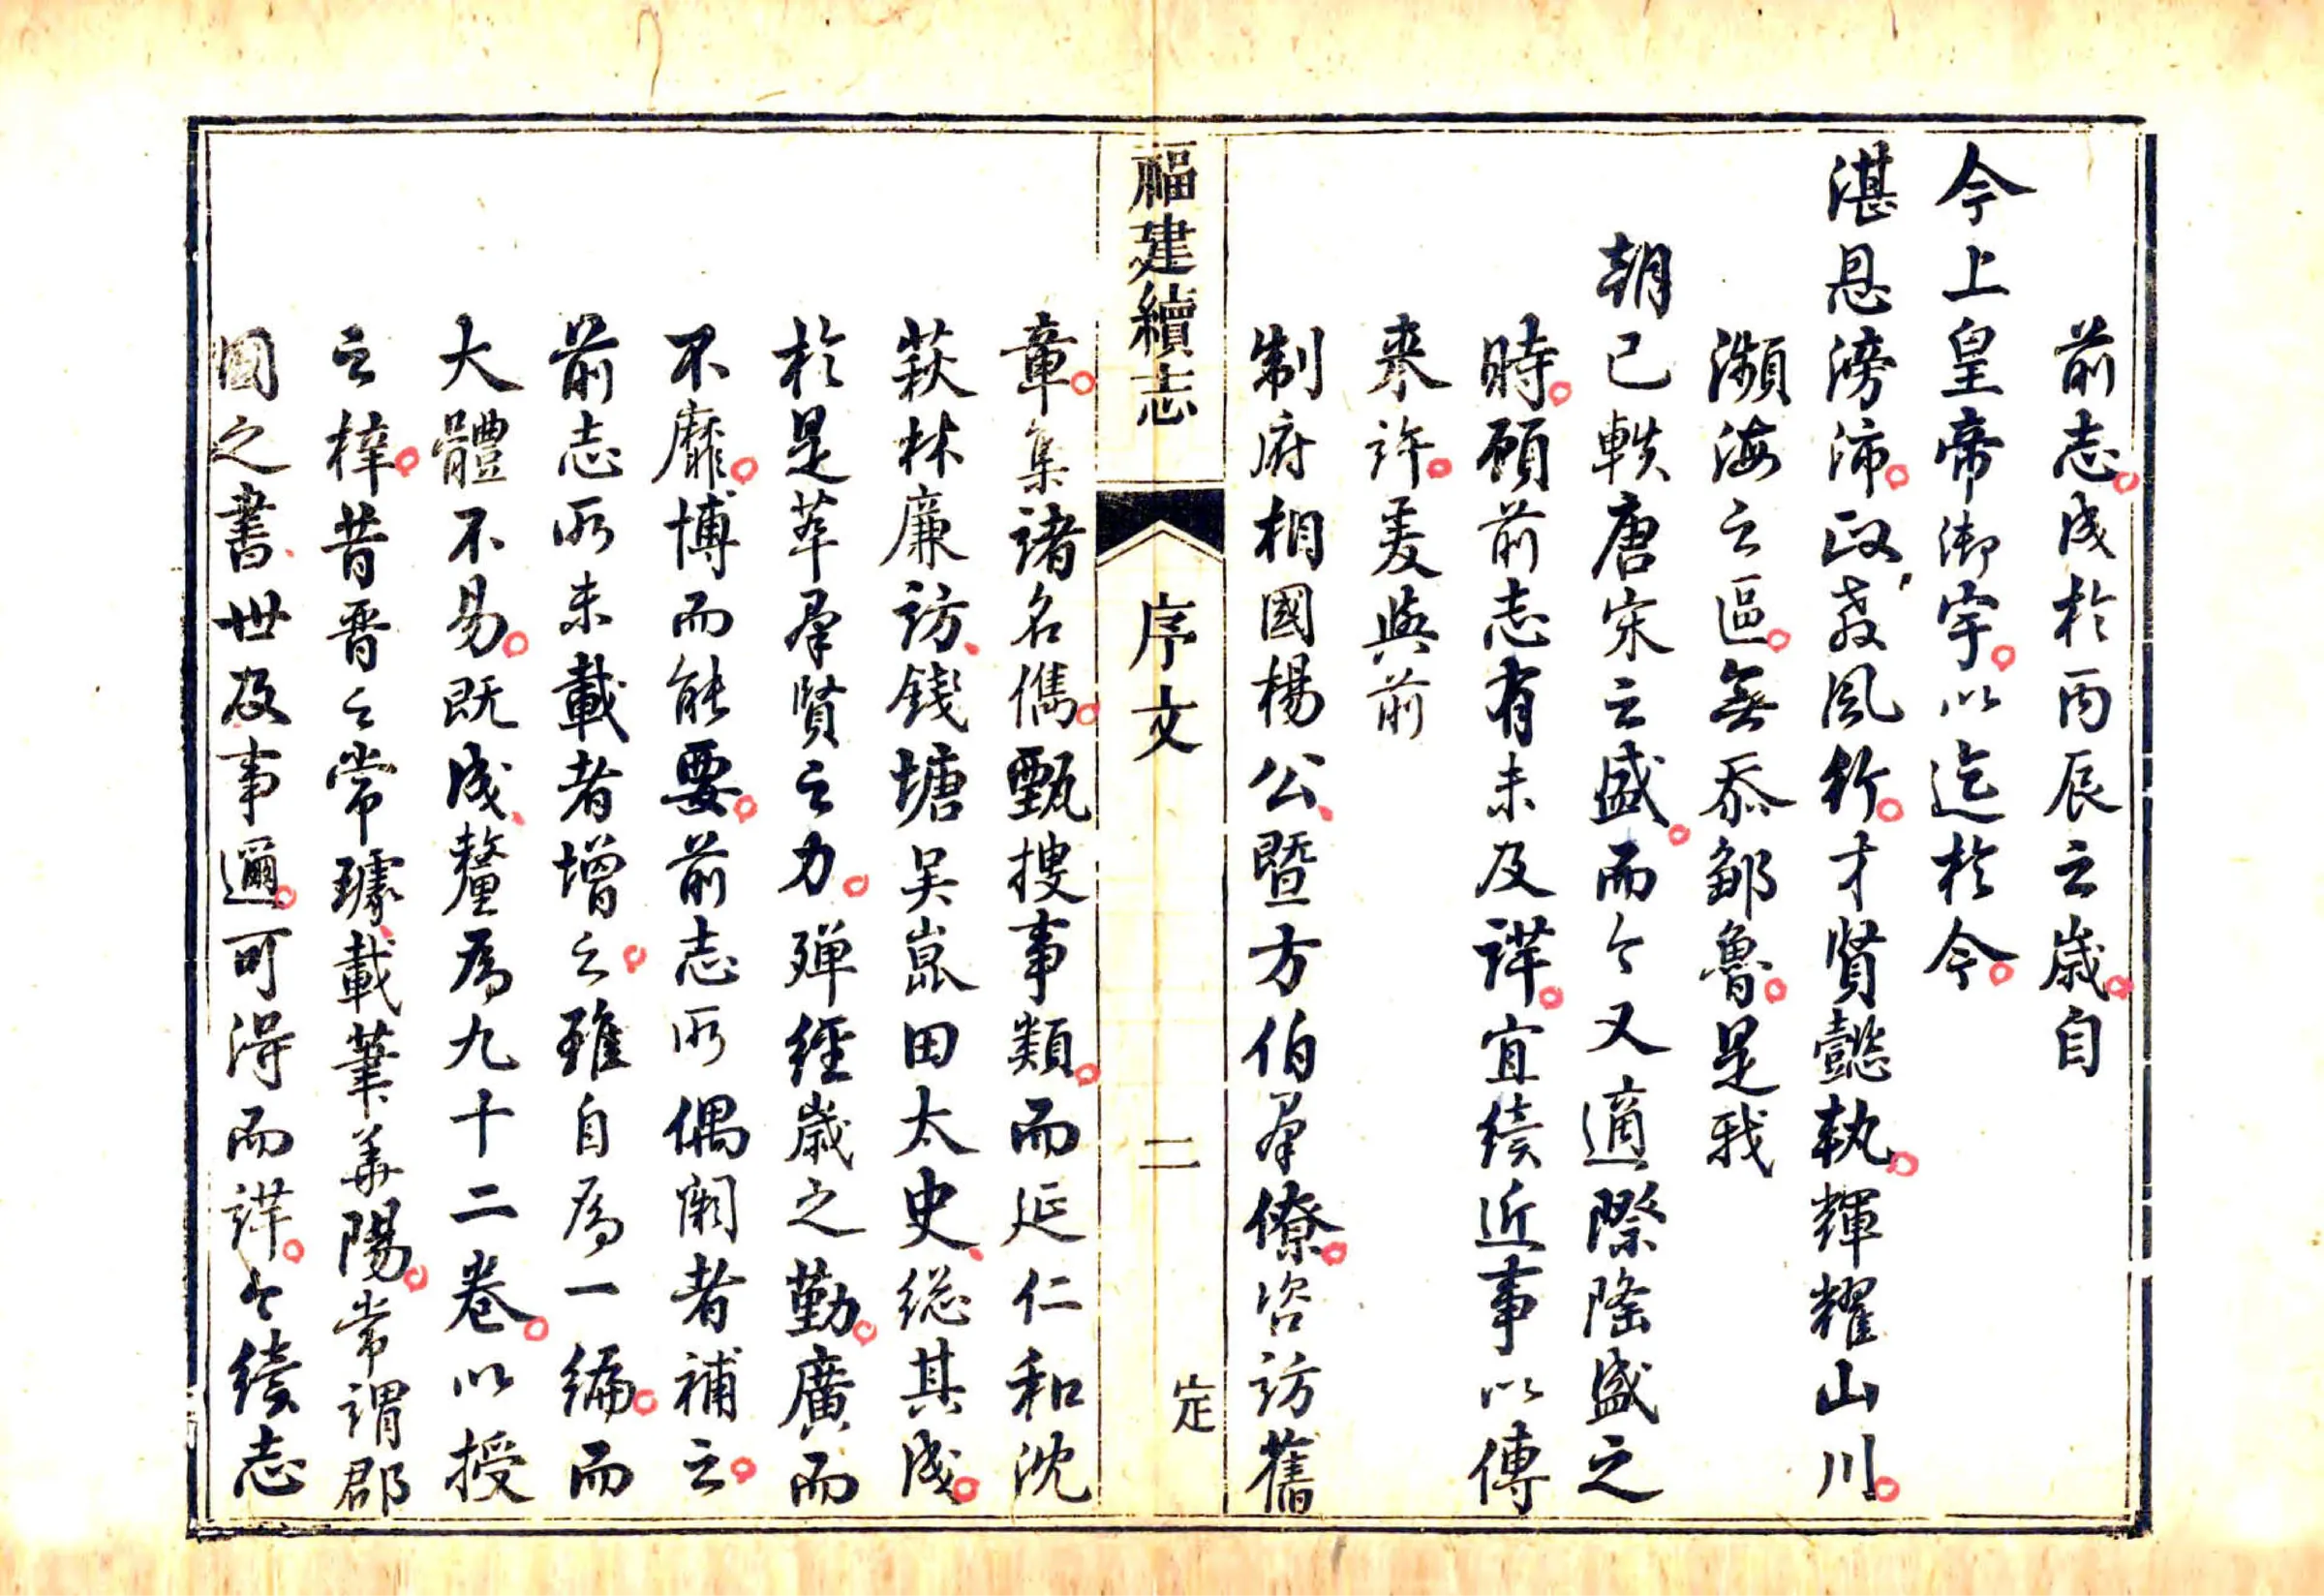 前志成於丙辰之歲自
今上皇帝御宇以迄於今
湛恩滂沛政教風行才賢懿執輝耀山川
瀕海之區無忝鄒魯是我
朝已軼唐宋之盛而今又適際隆盛之
時顧前志有未及詳宜續近事以傳
來許爰與前
制府相國楊公暨方伯群僚咨訪舊
福建續志
序文
二
定
章集諸名儁甄搜事類而延仁和沈
萩林廉訪錢塘吳崑田太史総其成
於是萃群賢之力殫經歲之勤廣而
不靡博而能要前志所偶闕者補之
前志所未載者增之雖自為一編而
大體不易既成釐為九十二卷以授
之梓昔晉之常璩載筆華陽常謂郡
國之書世及事邇可得而詳今續志